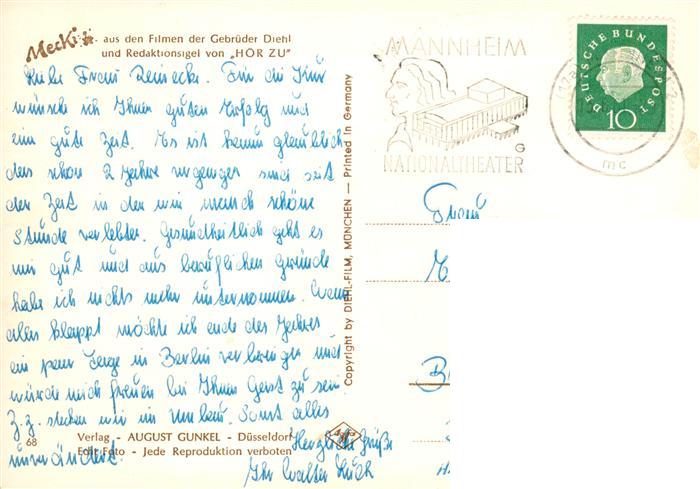 Mecki aus den Filmen der Gebrüder Diehl
und Redaktionsigel von „HÖR ZU"
Liebe Frau Reinecke. Für die Kur
wünsche ich Ihnen guten Erfolg und
eine gute Zeit. Es ist kaum glaublich
das schon 2 Jahre vergangen sind seit
der Zeit in der wir manch schöne
Stunde verlebten. Gesundheitlich geht es
mir gut und aus beruflichen Gründe
habe ich nichts mehr unternommen. Wenn
alles klappt möchte ich ende des Jahres
ein paar Tage in Berlin verbringen und
würde mich freuen bei Ihnen Gast zu sein
Z.z. stecken wir im Umbau. Sonst alles
unverändert.
Herzliche Grüße
Ihr Walter
68
Verlag - AUGUST GUNKEL - Düsseldorf
Echt Foto - Jede Reproduktion verboten
Copyright by DIEHL-FILM, MÜNCHEN — Printed in Germany
Agfa
MANNHEIM
NATIONALTHEATER
G
mc
DEUTSCHE BUNDESPOST
10
Frau